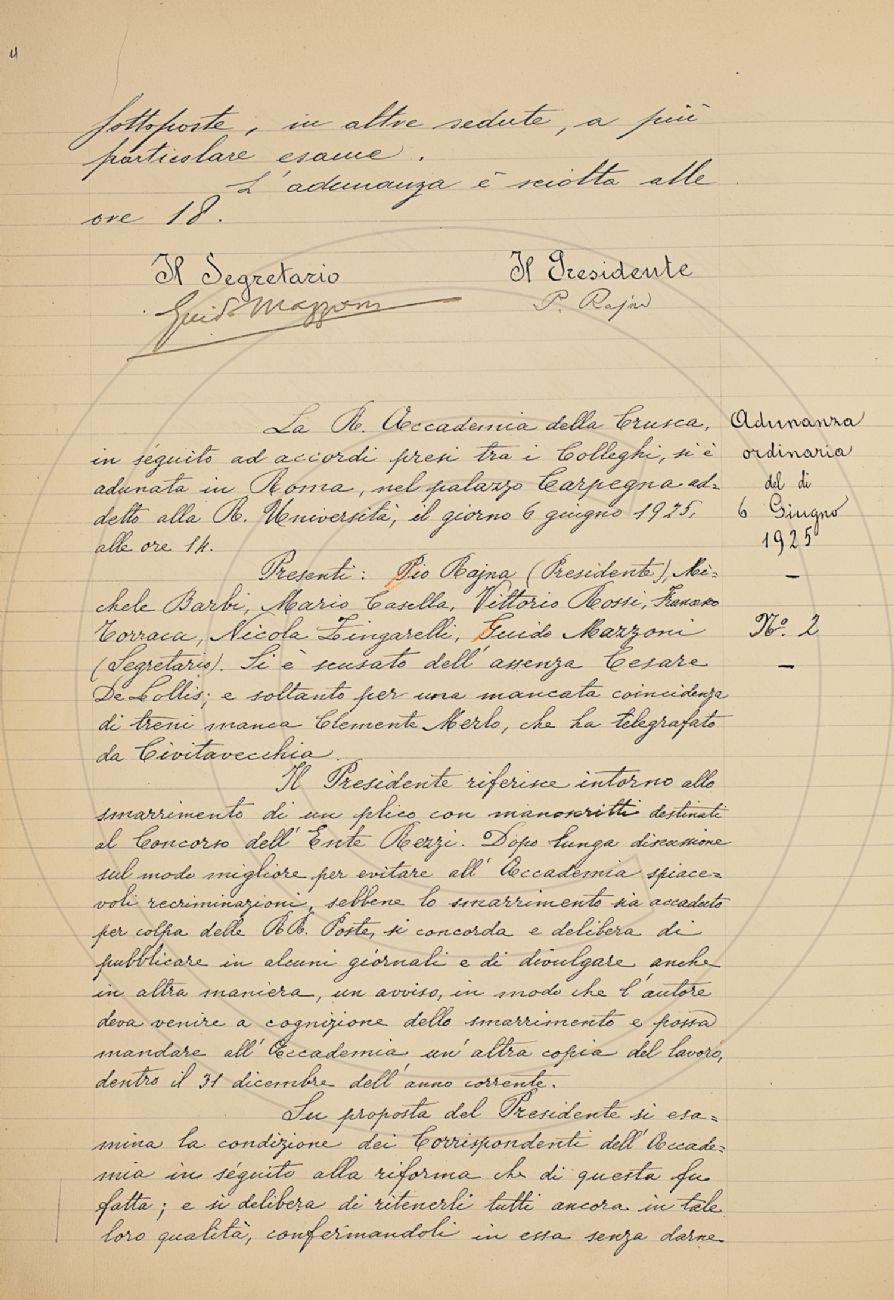 4
sottoposte, in altre sedute, a più
particolare esame.
L'adunanza è sciolta alle
ore 18.
Il Segretario
Guido Mazzoni
Il Presidente
P. Rajna
La R. Accademia della Crusca,
in séguito ad accordi presi tra i Colleghi, si è
adunata in Roma, nel palazzo Carpegna ad=
detto alla R. Università, il giorno 6 giugno 1925,
alle ore 14.
Adunanza
ordinaria
del dì
6 Giugno
1925
—
Nº. 2
—
Presenti: Pio Rajna (Presidente), Mi=
chele Barbi, Mario Casella, Vittorio Rossi, Francesco
Torraca, Nicola Zingarelli, Guido Mazzoni
(Segretario). Si è scusato dell'assenza Cesare
De Lollis; e soltanto per una mancata coincidenza
di treni manca Clemente Merlo, che ha telegrafato
da Civitavecchia.
Il Presidente riferisce intorno allo
smarrimento di un plico con manoscritti destinati
al Concorso dell'Ente Rezzi. Dopo lunga discussione
sul modo migliore per evitare all'Accademia spiace=
voli recriminazioni, sebbene lo smarrimento sia accaduto
per colpa delle RR. Poste, si concorda e delibera di
pubblicare in alcuni giornali e di divulgare anche
in altra maniera, un avviso, in modo che l'autore
deva venire a cognizione dello smarrimento e possa
mandare all'Accademia un'altra copia del lavoro,
dentro il 31 dicembre dell'anno corrente.
Su proposta del Presidente si esa=
mina la condizione dei Corrispondenti dell'Accade=
mia in séguito alla riforma che di questa fu
fatta; e si delibera di ritenerli tutti ancora in tale
loro qualità, confermandoli in essa senza darne